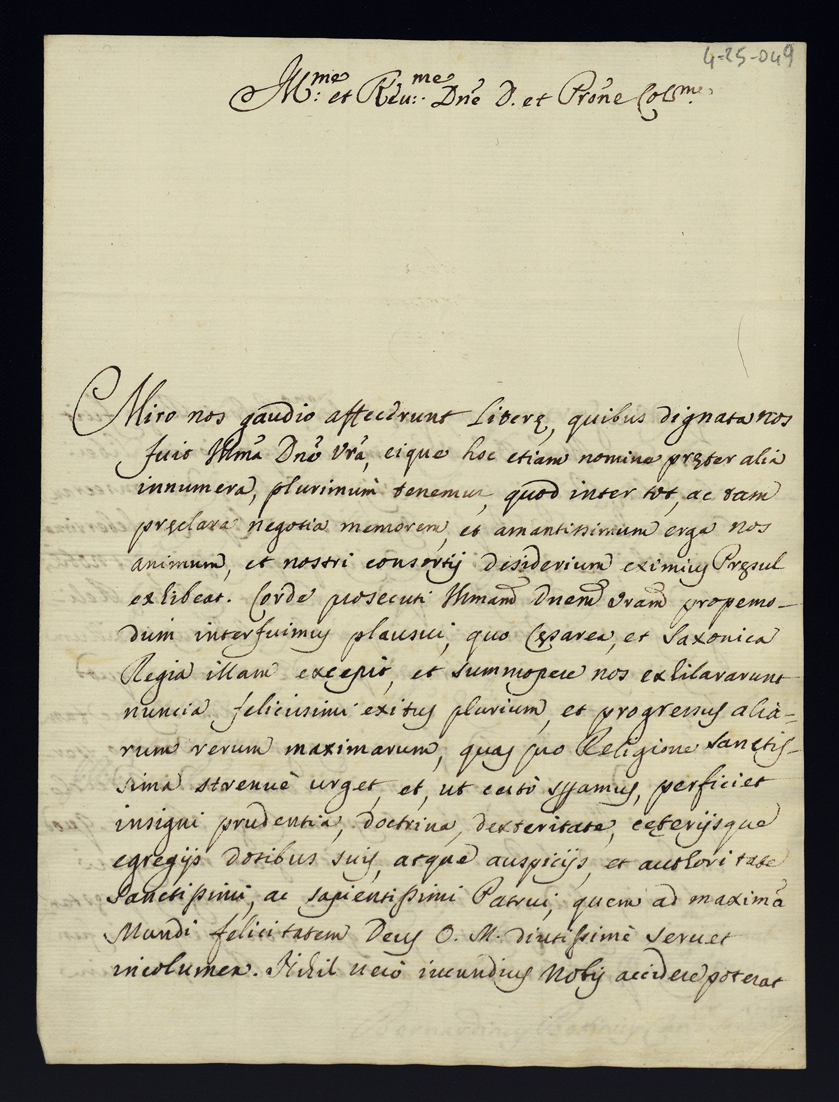 4-25-049
Jll:me et Reu:me Dne D. et Prone Col:me
Miro nos gaudio affecerunt Literę, quibus dignata nos
fuit Illma Dnõ Vrã, eique hoc etiam nomine pręter alia
innumera, plurimum tenemur, quod inter tot, ac tam
pręclara negotia memorem, et amantissimum erga nos
animum, et nostri consortij desiderium eximius Pręsul
exhibeat. Corde prosecuti Illmam Dnem Vram propemo-
dum interfuimus plausui, quo Cęsarea, et Saxonica
Regia illam excepit, et summopere nos exhilararunt
nuncia felicissimi exitus plurium, et progressus alia-
rum rerum maximarum, quas pro Religione sanctis-
sima strenuè urget, et, ut certò speramus, perficiet
insigni prudentia, doctrina, dexteritate, ceterijsque
egregijs dotibus suis, atque auspicijs, et authoritate
Sanctissimi, ac sapientissimi Patrui, quem ad maximã
Mundi felicitatem Deus O. M. diutissimè seruet
incolumem. Nihil uerò iucundius nobis accidere poterat